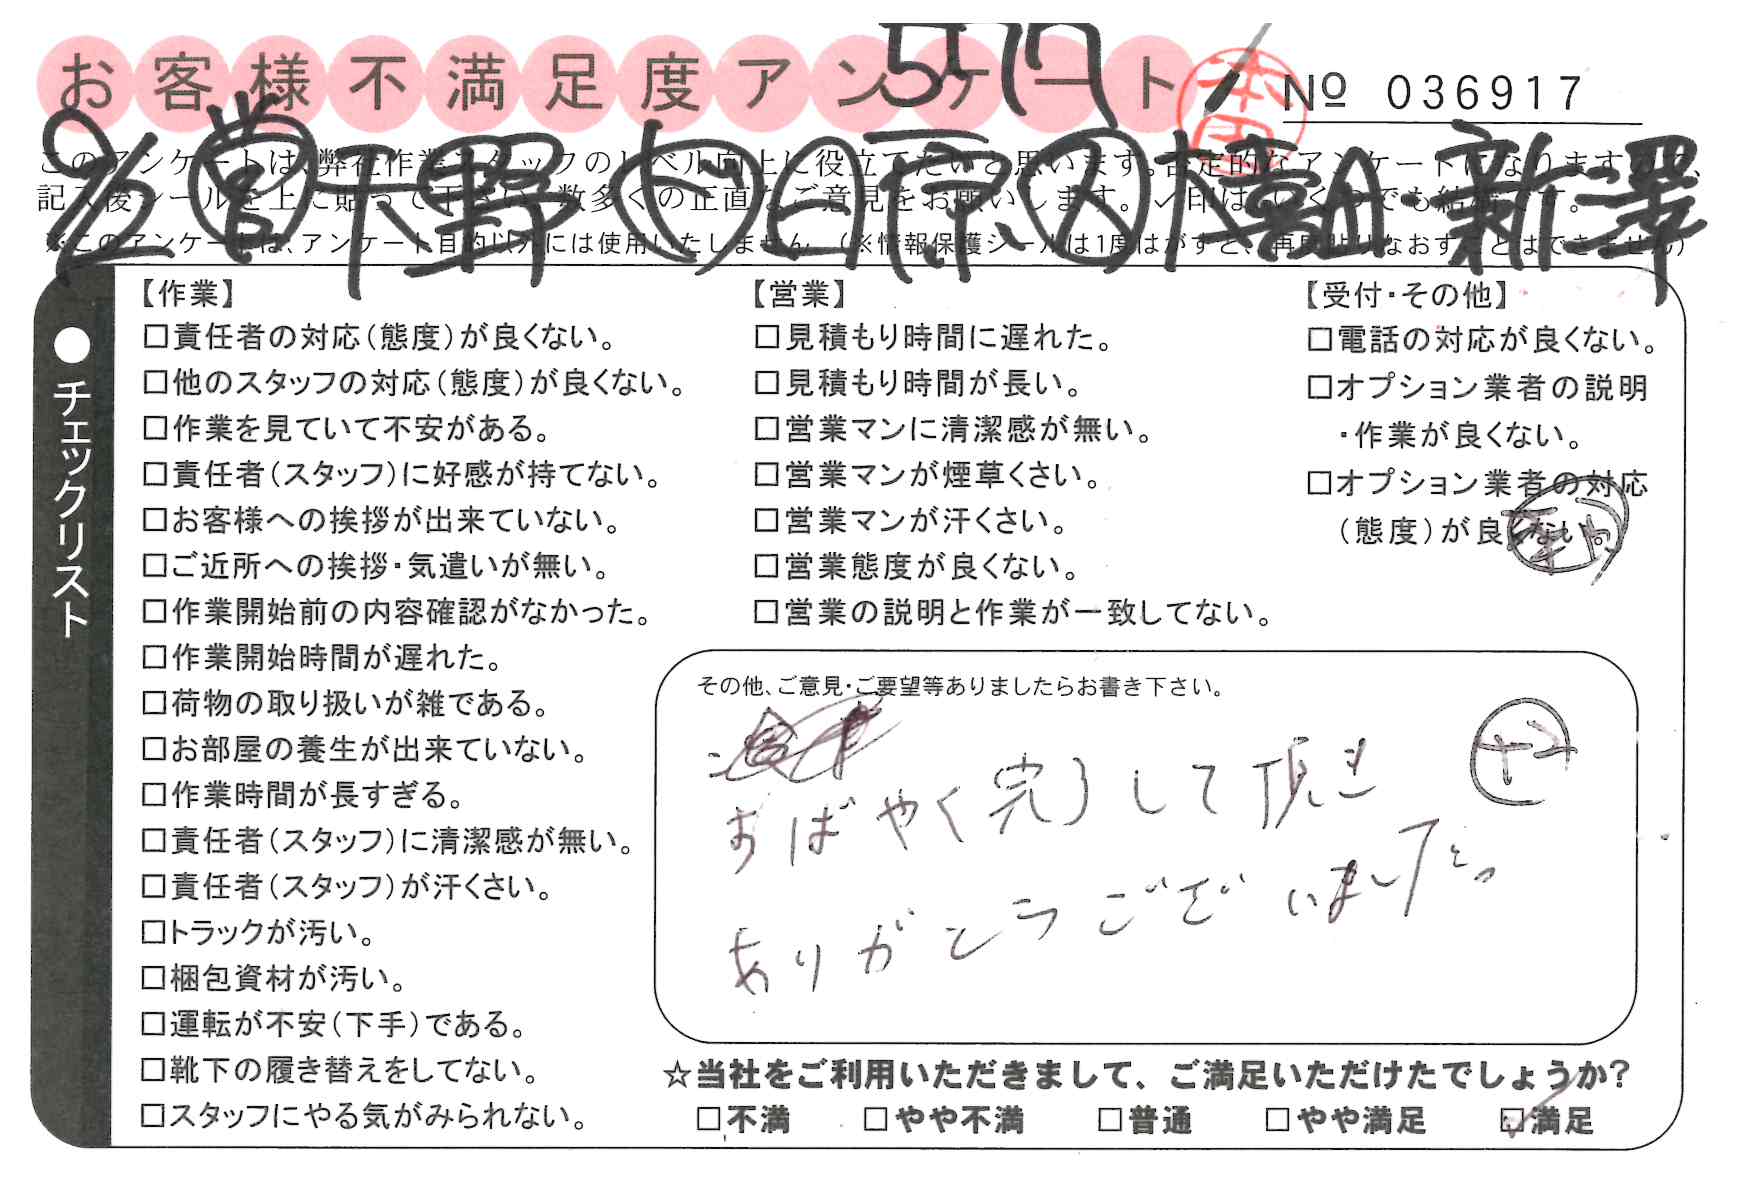 お客様不満足度アンケート
№ 036917
このアンケートは、弊社作業スタッフのレベル向上に役立てたいと思います。否定的なアンケートになりますので、
記入後シールを上に貼って下さい。数多くの正直なご意見をお願いします。✓印はいくつでも結構です。
※このアンケートは、アンケート目的以外には使用いたしません。(※情報保護シールは1度はがすと、再度貼りなおすことはできません)
2/2 営 下野 ド 日原、 新澤
●チェックリスト
【作業】
□責任者の対応(態度)が良くない。
□他のスタッフの対応(態度)が良くない。
□作業を見ていて不安がある。
□責任者(スタッフ)に好感が持てない。
□お客様への挨拶が出来ていない。
□ご近所への挨拶・気遣いが無い。
□作業開始前の内容確認がなかった。
□作業開始時間が遅れた。
□荷物の取り扱いが雑である。
□お部屋の養生が出来ていない。
□作業時間が長すぎる。
□責任者(スタッフ)に清潔感が無い。
□責任者(スタッフ)が汗くさい。
□トラックが汚い。
□梱包資材が汚い。
□運転が不安(下手)である。
□靴下の履き替えをしてない。
□スタッフにやる気がみられない。
【営業】
□見積もり時間に遅れた。
□見積もり時間が長い。
□営業マンに清潔感が無い。
□営業マンが煙草くさい。
□営業マンが汗くさい。
□営業態度が良くない。
□営業の説明と作業が一致してない。
【受付・その他】
□電話の対応が良くない。
□オプション業者の説明
・作業が良くない。
□オプション業者の対応
(態度)が良くない。
その他、ご意見・ご要望等ありましたらお書き下さい。
すばやく完了して頂き
ありがとうございました。
☆当社をご利用いただきまして、ご満足いただけたでしょうか?
□不満 □やや不満 □普通 □やや満足 ☑満足